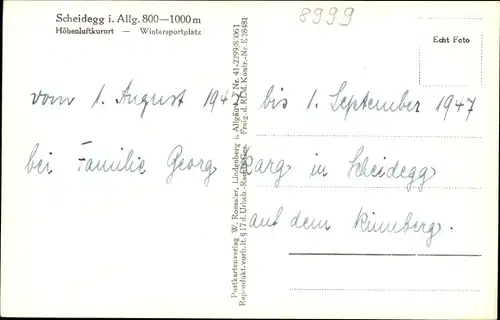 Scheidegg i. Allg. 800—1000 m
Höhenluftkurort — Wintersportplatz
8999
Echt Foto
vom 1. August 1947 bis 1. September 1947
bei Familie Georg in Scheidegg
auf dem
Postkartenverlag W. Roessler, Lindenberg i. Allgäu Nr. 41-2299/8.061
Reprodukt. vorb. lt. § 17 d. Urheb.-Freig. d. RLM. Kontr.-Nr. E 28481